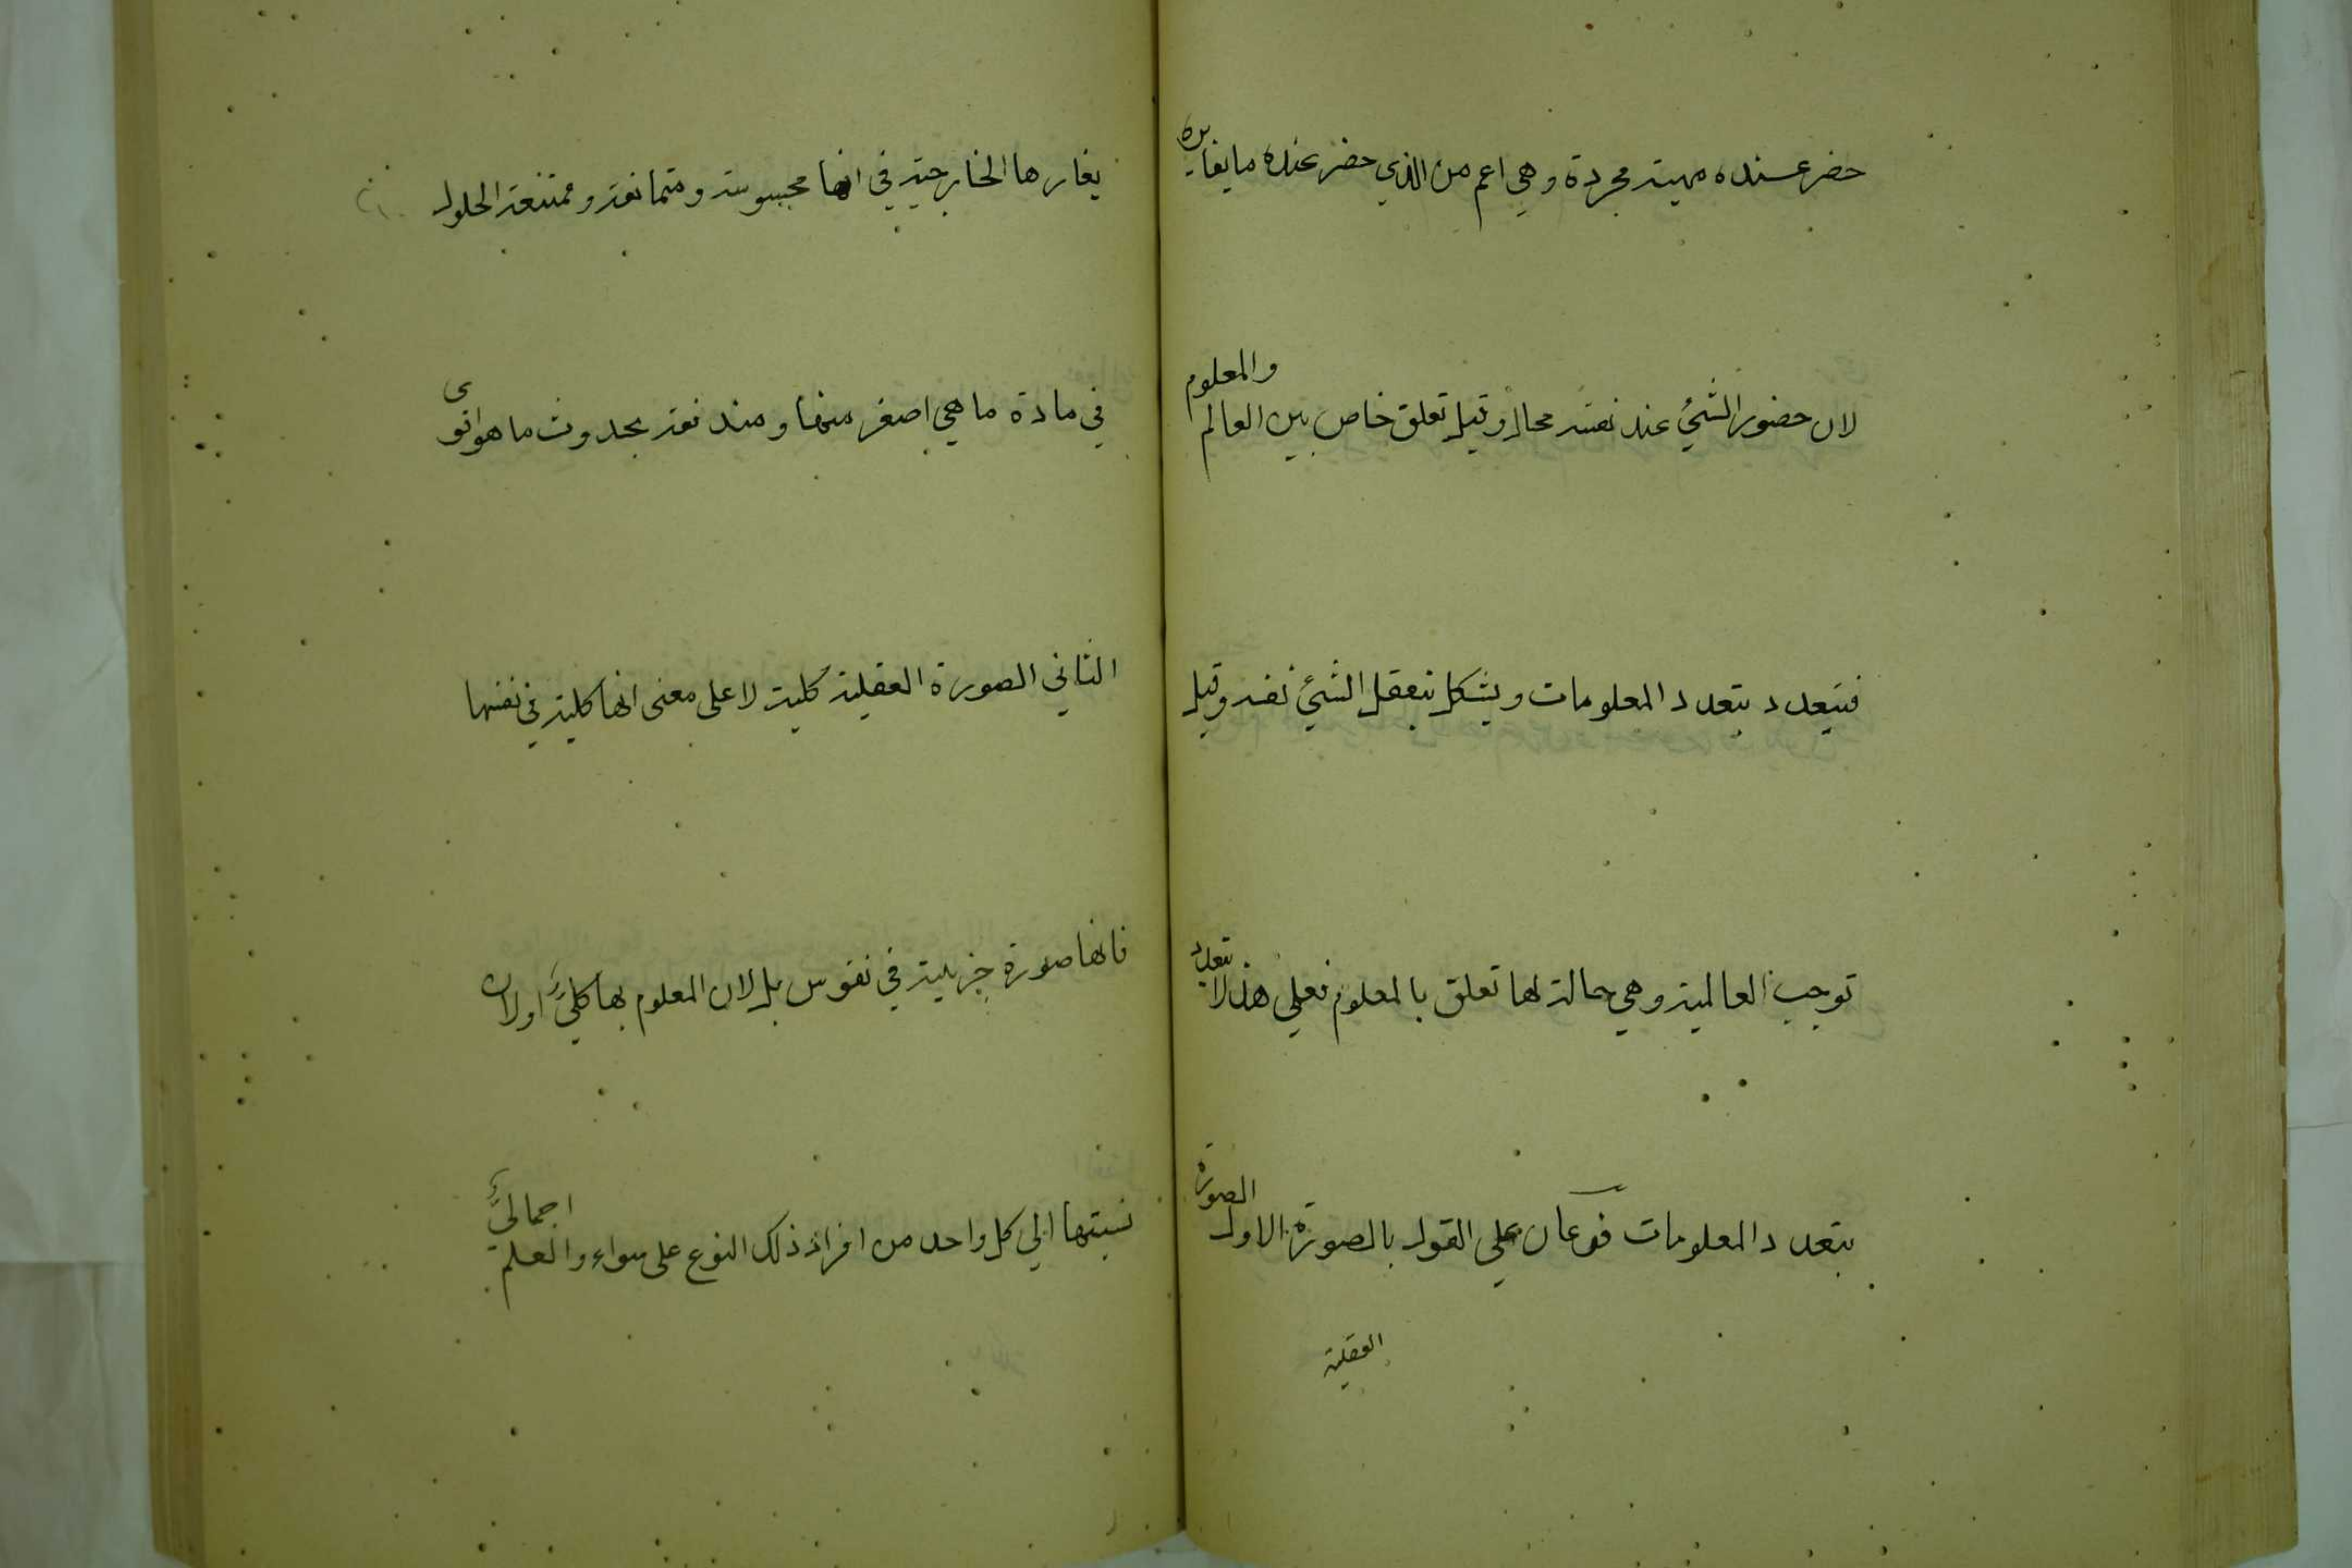 حضر عنده مهية مجردة وهي اعم من الذي حضر عنده ما يغايره
لان حضور الشيء عند نفسه محال وقيل تعلق خاص بين العالم والمعلوم
فيتعدد بتعدد المعلومات ويشكل بتعقل الشيء نفسه وقيل
توجب العالمية وهي حالة لها تعلق بالمعلوم فعلي هذا لا يتعدد
بتعدد المعلومات فرعان علي القول بالصورة الاول الصورة
العقلية
يغارها الخارجية في انها محسوسة ومتمانعة وممتنعة الحلول
في مادة ما هي اصغر منها ومندفعة بحدوث ما هو اقوى
الثاني الصورة العقلية كلية لا على معنى انها كلية في نفسها
فانها صورة جزيية في نفوس بل لان المعلوم بها كلي اولان
نسبتها الي كل واحد من افراد ذلك النوع على سواء والعلم اجمالي